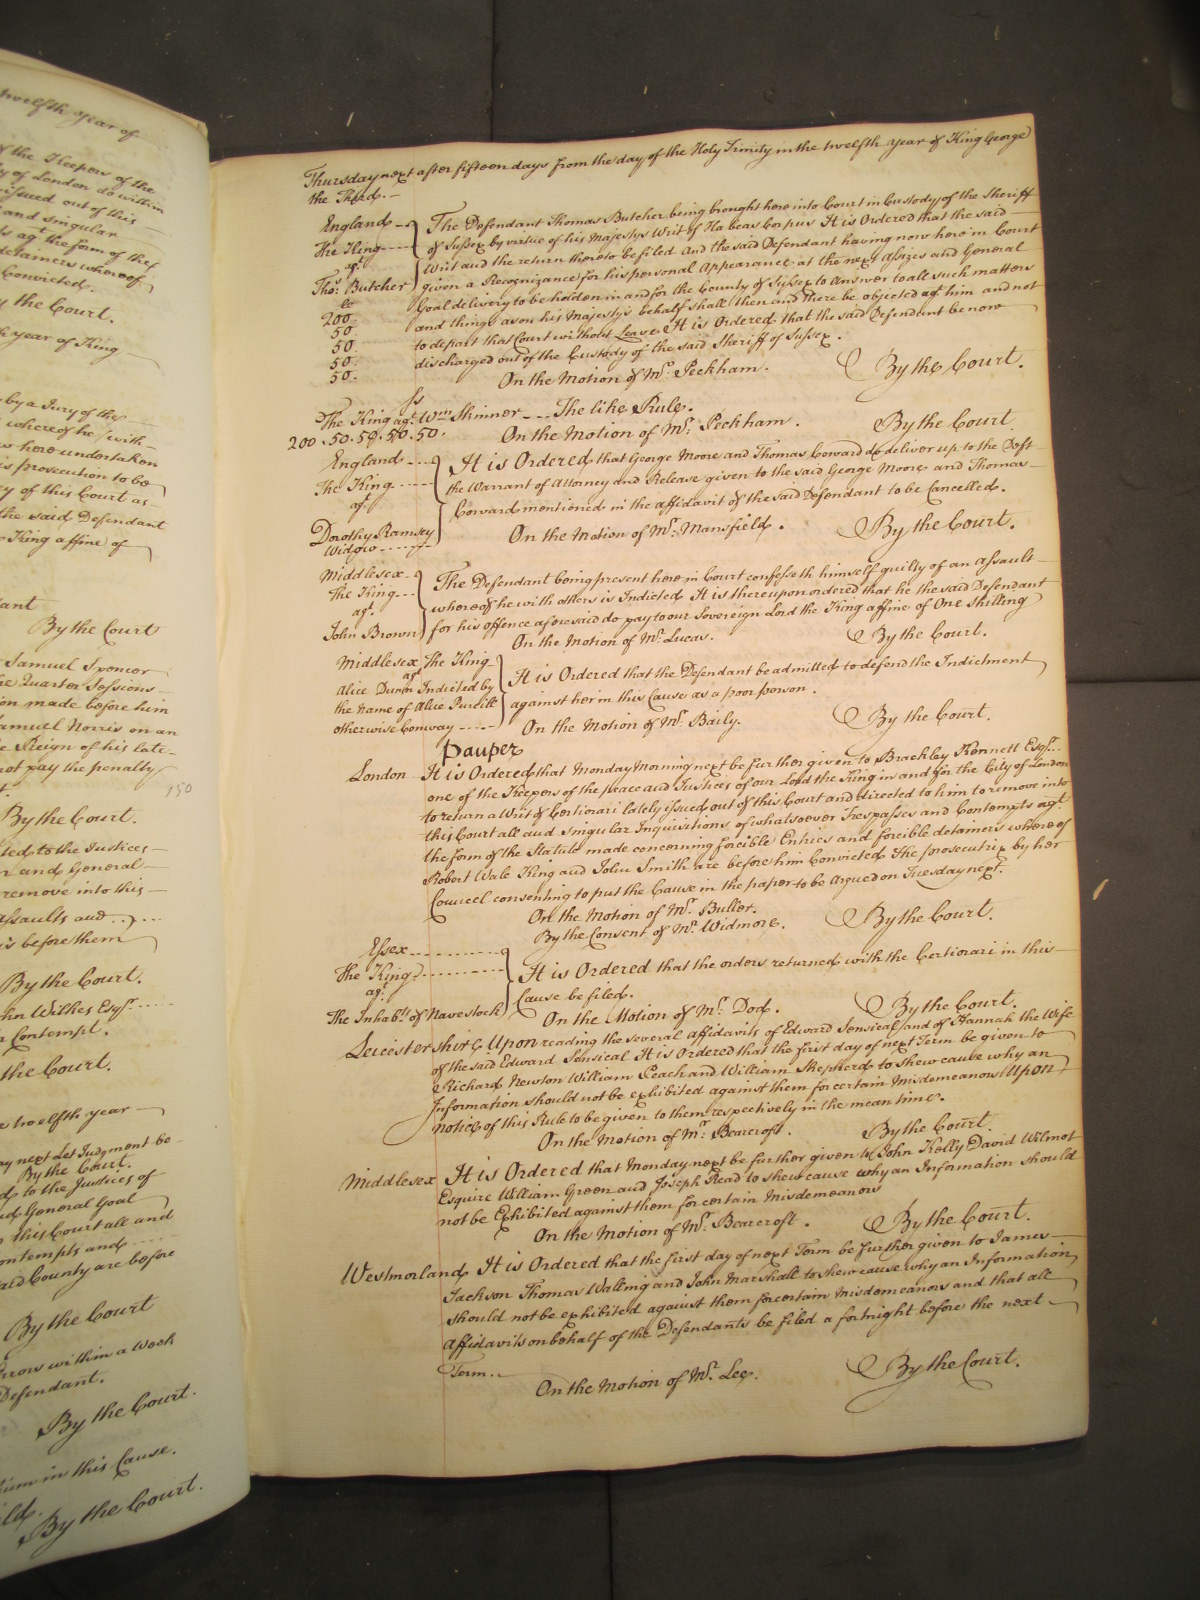 twelfth year of
of the Keepers of the
of London do within
issued out of this
and singular
agt. the form of the
detainers whereof
Convicted.
By the Court.
year of King
by a Jury of the
whereof he with
here undertaken
prosecution to be
of this Court as
the said Defendant
King a ffine of
By the Court
Samuel Spencer
Quarter Sessions
made before him
Samuel Norris on an
Reign of his late
not pay the penalty
150
By the Court.
to the Justices
and General
remove into this
Assaults and
before them
By the Court.
John Wilkes Esqr.
Contempt.
the Court.
twelfth year
next Let Judgment be
By the Court.
to the Justices of
General Goal
this Court all and
Contempts and
said County are before
By the Court
Errors within a Week
Defendant.
By the Court.
in this Cause.
By the Court.
Thursday next after fifteen days from the day of the Holy Trinity in the twelfth year of King George
the Third.
England
The King
agt.
Thos. Butcher
£
200
50
50
50
50.
The Defendant Thomas Butcher being brought here into Court in Custody of the Sheriff
of Sussex by virtue of his Majestys Writ of Habeas Corpus It is Ordered that the said
Writ and the return thereto be filed And the said Defendant having now here in Court
given a Recognizance for his personal Appearance at the next Assizes and General
Goal delivery to be holden in and for the County of Sussex to Answer to all such matters
and things as on his Majestys behalf shall then and there be objected agt. him and not
to depart that Court without Leave It is Ordered that the said Defendant be now
discharged out of the Custody of the said Sheriff of Sussex.
On the Motion of Mr. Peckham. By the Court.
Ss
The King agt. Wm. Skinner The like Rule.
200. 50. 50. 50. 50. On the Motion of Mr. Peckham. By the Court.
England
The King
agt.
Dorothy Ramsey
Widow
It is Ordered that George Moore and Thomas Coward do deliver up to the Deft
the Warrant of Attorney and Release given to the said George Moore and Thomas
Coward mentioned in the affidavit of the said Defendant to be Cancelled.
On the Motion of Mr. Mansfield. By the Court.
Middlesex
The King
agt.
John Brown
The Defendant being present here in Court confesseth himself guilty of an assault
whereof he with others is Indicted It is thereupon ordered that he the said Defendant
for his offence aforesaid do pay to our Sovereign Lord the King a ffine of One Shilling
On the Motion of Mr. Lucas. By the Court.
Middlesex The King
agt.
Alice Dunn Indicted by
the Name of Alice Purcill
otherwise Conway
It is Ordered that the Defendant be admitted to defend the Indictment
against her in this Cause as a poor person.
On the Motion of Mr. Baily. By the Court.
Pauper
London It is Ordered that Monday Morning next be further given to Brackley Kennett Esqr.
one of the Keepers of the peace and Justices of our Lord the King in and for the City of London
to return a Writ of Certiorari lately issued out of this Court and directed to him to remove into
this Court all and singular Inquisitions of whatsoever Trespasses and Contempts agt.
the form of the Statute made concerning forcible Entries and forcible detainers whereof
Robert Wale King and John Smith are before him Convicted The prosecutrix by her
Councel consenting to put the Cause in the paper to be Argued on Tuesday next.
On the Motion of Mr. Buller.
By the Consent of Mr. Widmore. By the Court.
Essex
The King
agt.
The Inhabts. of Navestock
It is Ordered that the orders returned with the Certiorari in this
Cause be filed.
On the Motion of Mr. Dod. By the Court.
Leicestershire Upon reading the several affidavits of Edward Sensical and of Hannah the Wife
of the said Edward Sensical It is Ordered that the first day of next Term be given to
Richard Newton William Peach and William Shepherd to shew cause why an
Information should not be exhibited against them for certain Misdemeanors Upon
notice of this Rule to be given to them respectively in the mean time.
On the Motion of Mr. Bearcroft. By the Court.
Middlesex It is Ordered that Monday next be further given to John Kelly David Wilmot
Esquire William Green and Joseph Read to shew cause why an Information should
not be Exhibited against them for certain Misdemeanors
On the Motion of Mr. Bearcroft. By the Court.
Westmorland It is Ordered that the first day of next Term be further given to James
Jackson Thomas Walling and John Marshall to shew cause why an Information
should not be exhibited against them for certain Misdemeanors and that all
affidavits on behalf of the Defendants be filed a fortnight before the next
Term.
On the Motion of Mr. Lee. By the Court.